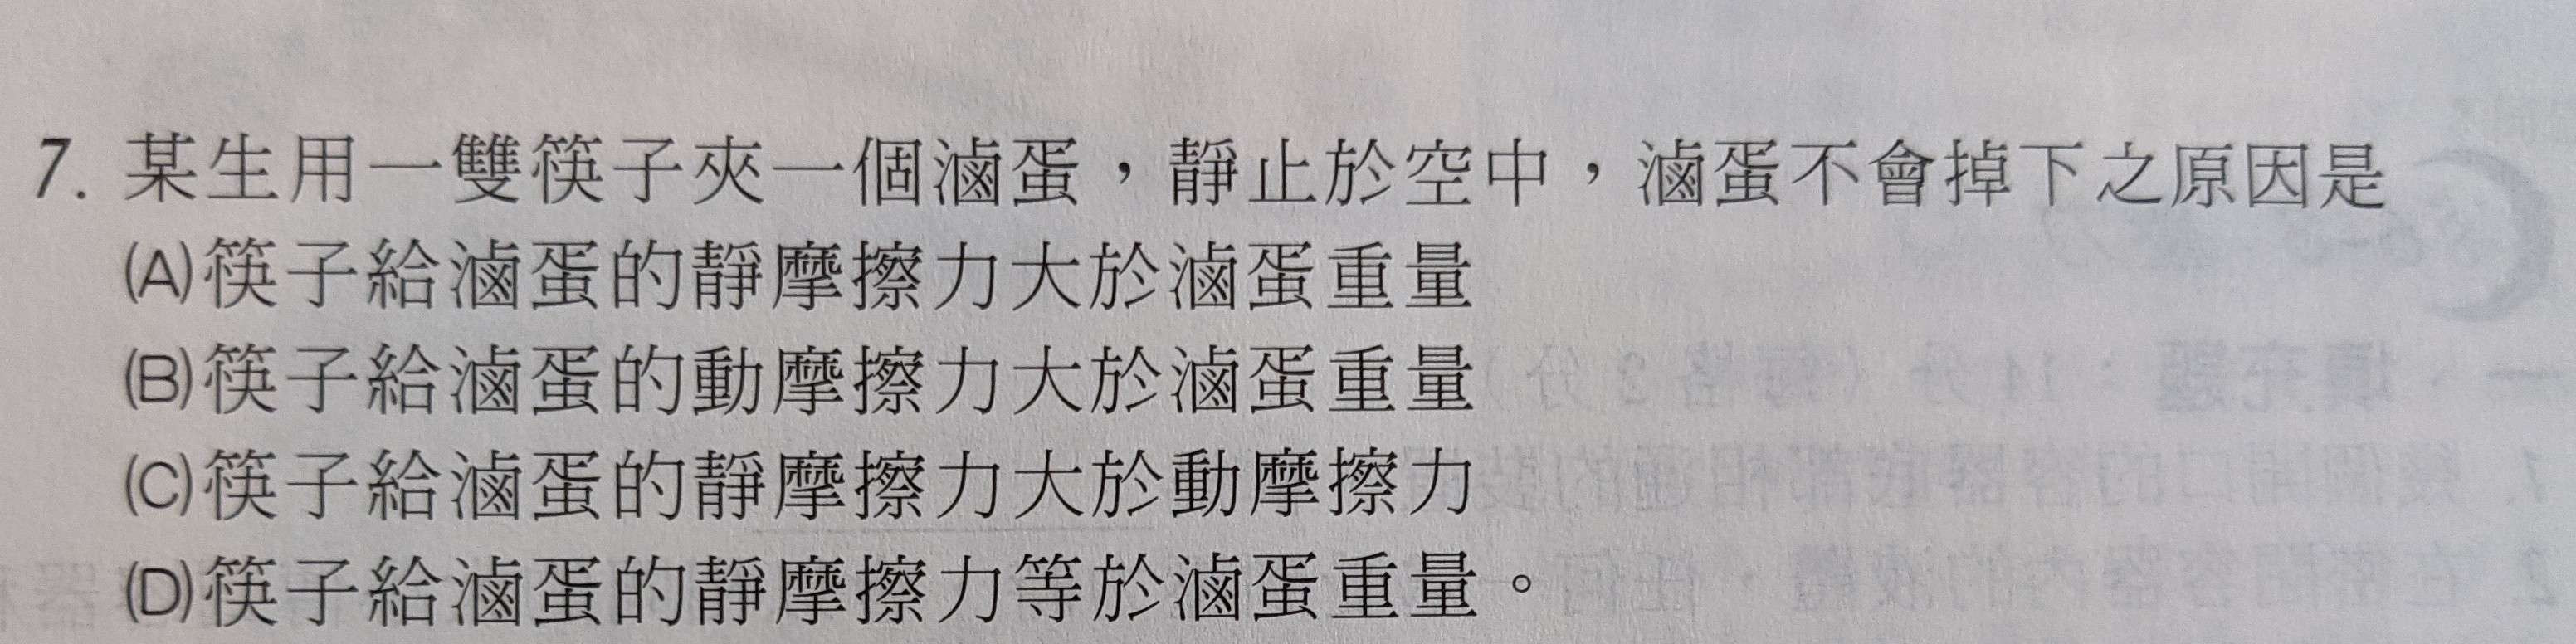 7. 某生用一雙筷子夾一個滷蛋，靜止於空中，滷蛋不會掉下之原因是
(A)筷子給滷蛋的靜摩擦力大於滷蛋重量
(B)筷子給滷蛋的動摩擦力大於滷蛋重量
(C)筷子給滷蛋的靜摩擦力大於動摩擦力
(D)筷子給滷蛋的靜摩擦力等於滷蛋重量。